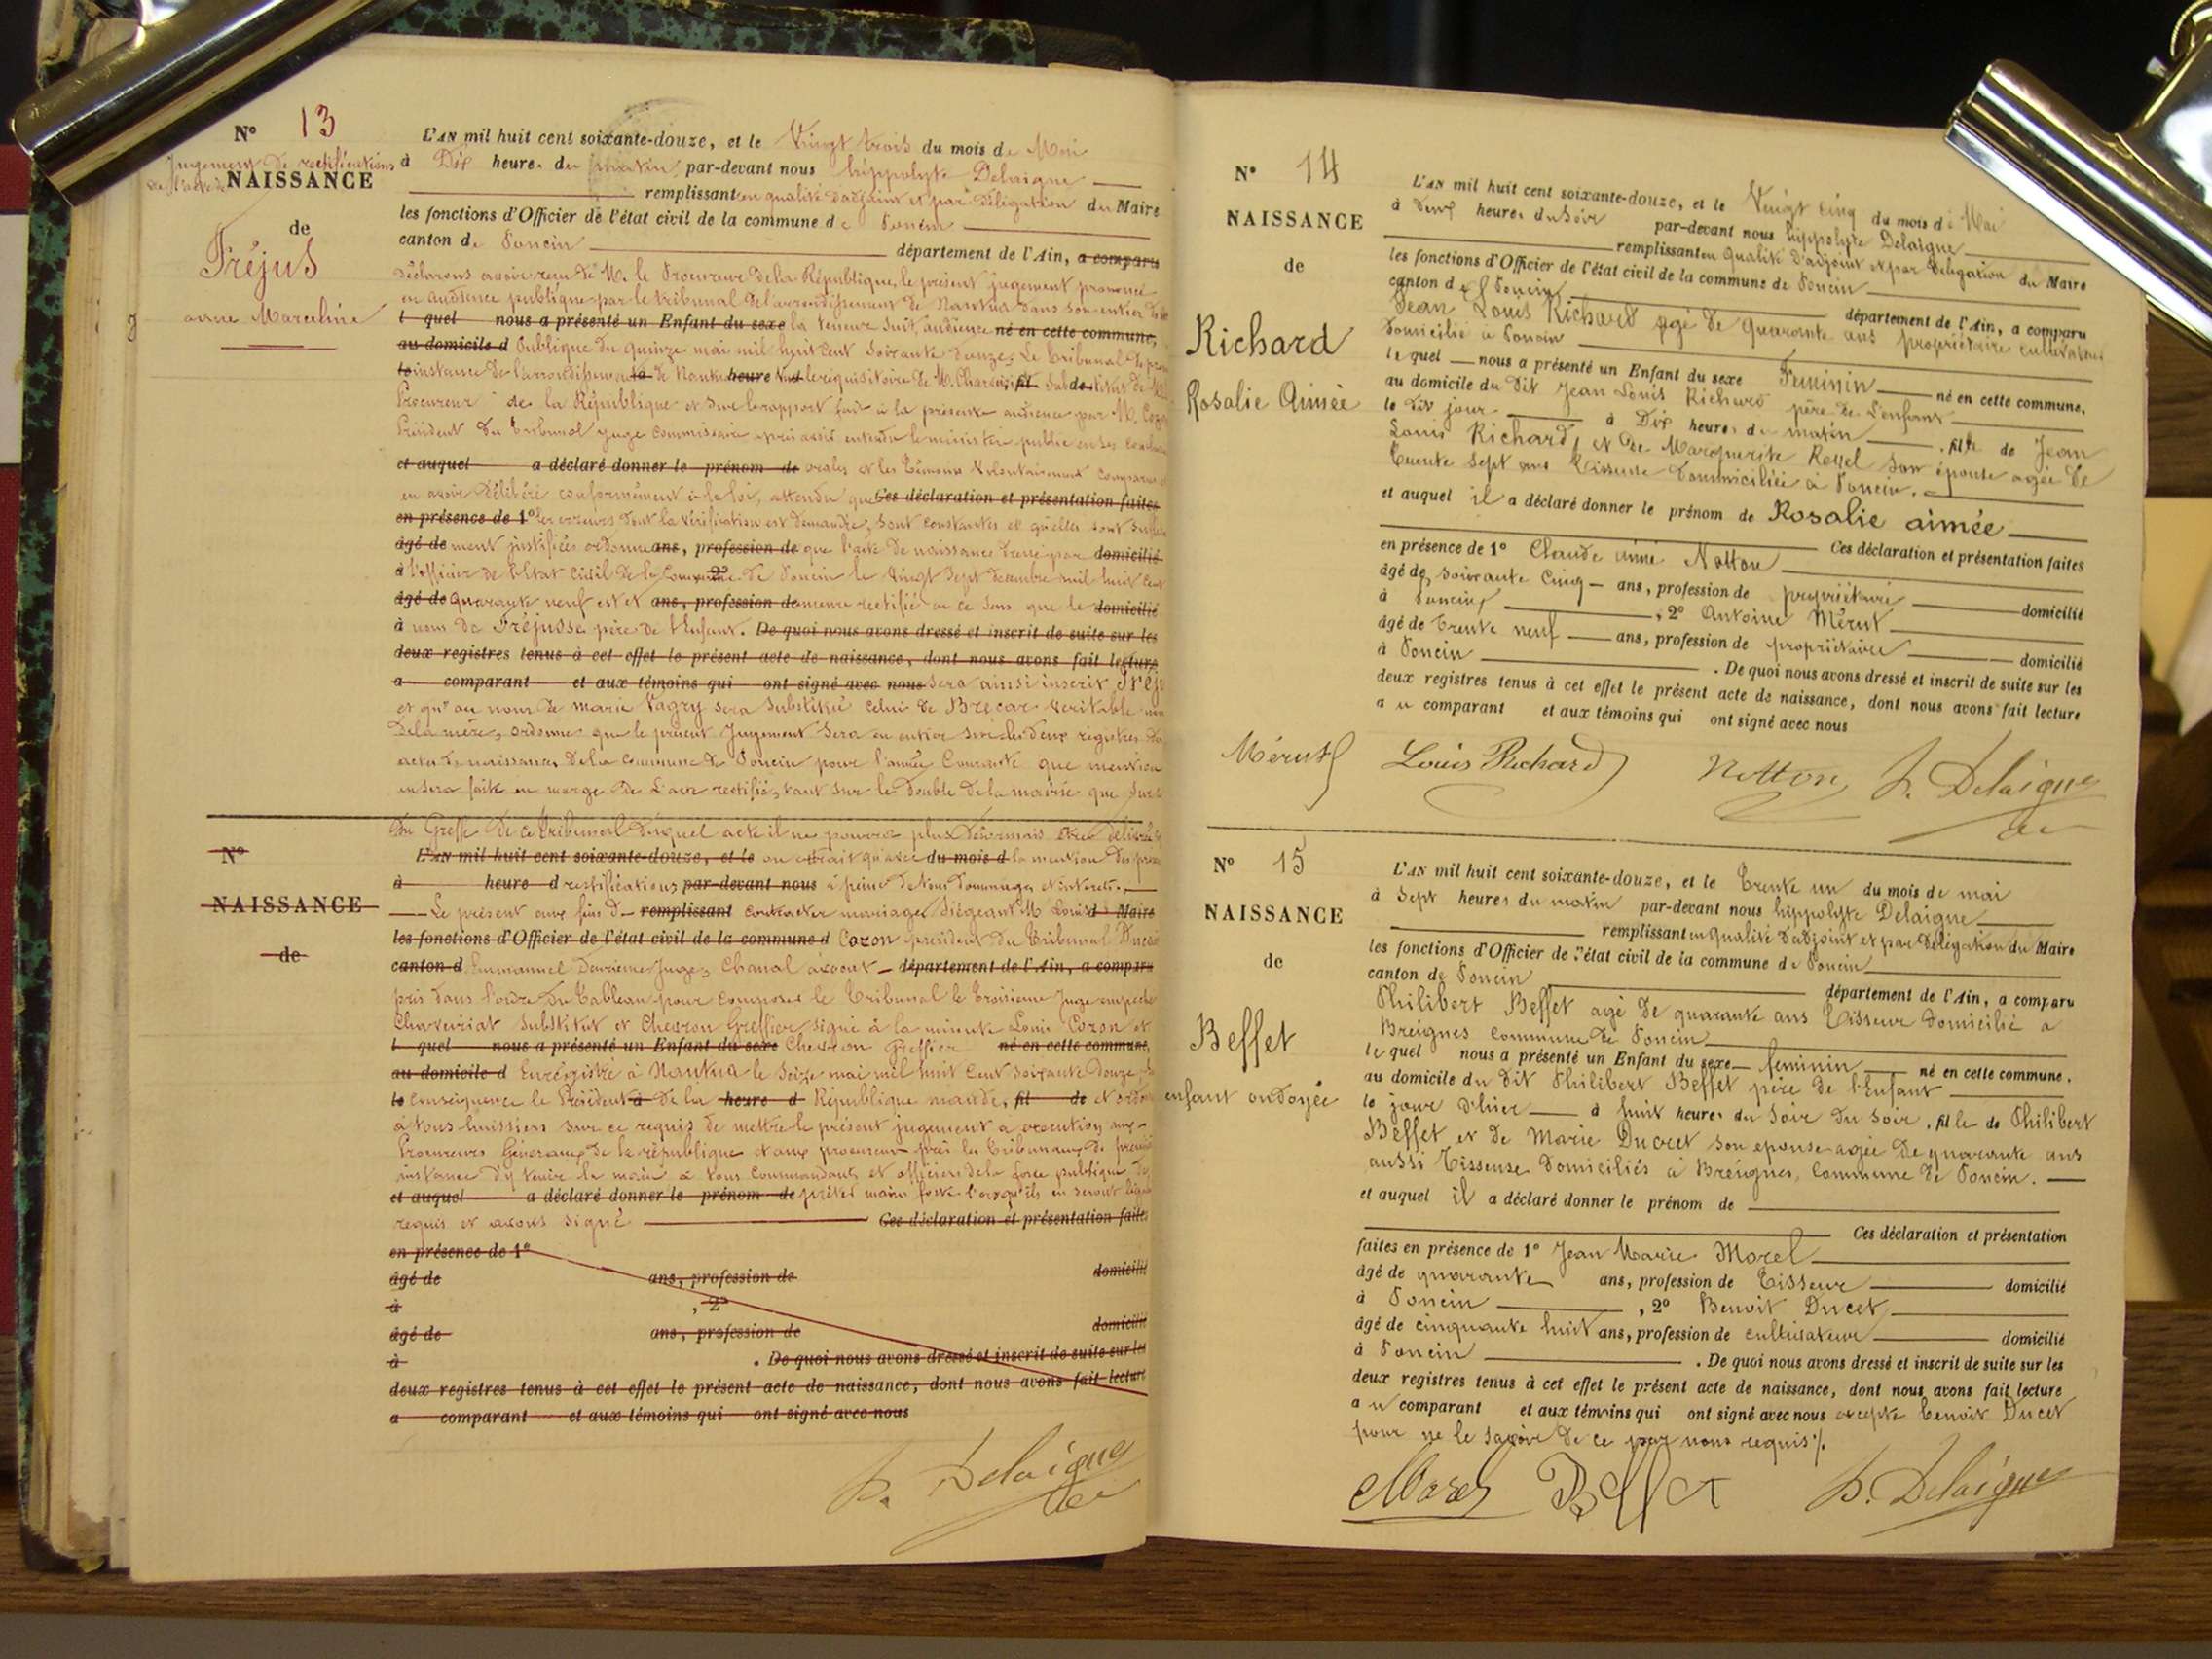 N° 13
Jugement de rectifications
NAISSANCE
de
Fréjus
anne Marceline
L'AN mil huit cent soixante-douze, et le Vingt trois du mois de Mai
à Dix heure. du matin par-devant nous hippolyte Delaigue
remplissant en qualité d'adjoint et par délégation du Maire
les fonctions d'Officier de l'état civil de la commune de Poncin
canton de Poncin département de l'Ain, a comparu
Déclarons avoir reçu de M. le Procureur de la République, le présent jugement prononcé
en audience publique par le tribunal de l'arrondissement de Nantua dans son entier
l quel nous a présenté un Enfant du sexe la teneur suit, audience né en cette commune,
au domicile d Publique du quinze mai mil huit cent soixante douze, Le tribunal de
instance de l'arrondissement de Nantua heure Vu le réquisitoire de M. fil Substitut de
Procureur de la République et sur le rapport fait à la présente audience par M.
Président du tribunal juge commissaire après avoir entendu le ministère public en ses
et auquel a déclaré donner le prénom de orales et les témoins volontairement
en avoir délibéré conformément à la loi, attendu que Ces déclaration et présentation faites
en présence de 1° les erreurs dont la vérification est demandée, sont constantes et qu'elles sont
âgé de ment justifiées ordonne ans, profession de que l'acte de naissance dressé par domicilié
à l'officier de l'Etat Civil de la Commune 2° de Poncin le vingt sept décembre mil huit cent
âgé de quarante neuf est et ans, profession de rectifié en ce sens que le domicilié
à nom de Fréjus père de l'Enfant. De quoi nous avons dressé et inscrit de suite sur les
deux registres tenus à cet effet le présent acte de naissance, dont nous avons fait lecture
a comparant et aux témoins qui ont signé avec nous sera ainsi inscrit
et qu'au nom de marie Vagry sera substitué celui de Brecar véritable
de la mère, ordonne que le présent Jugement sera en entier sur les deux registres
actes de naissances de la commune de Poncin pour l'année Courante que mention
en sera faite en marge de l'acte rectifié, tant sur le double de la mairie que
du Greffe de ce tribunal duquel acte il ne pourra plus désormais être délivré
N°
L'AN mil huit cent soixante-douze, et le ou extrait qu'avec du mois d la mention des
à heure d rectifications par-devant nous à peine de tous dommages et intérêts.
NAISSANCE
Le présent aux fins d remplissant contracter mariage, Siégeant M Louis d Maire
les fonctions d'Officier de l'état civil de la commune d Cozon président du tribunal
de
canton d Emmanuel Deuxième Juge, Chanal avocat département de l'Ain, a comparu
pris dans l'ordre du tableau pour composer le tribunal le troisieme Juge empeché
substitut et Chevron Greffier, signé à la minute Louis Cozon et
l quel nous a présenté un Enfant du sexe Chevron Greffier né en cette commune,
au domicile d Enregistré à Nantua le Seize mai mil huit cent soixante douze
le conséquence le Président à de la heure d République mande, fil de et ordonne
à tous huissiers sur ce requis de mettre le présent jugement a execution, aux
Procureurs Généraux de la république et aux procureurs près les tribunaux de première
instance d'y tenir la main à tous commandants et officiers de la force publique
et auquel a déclaré donner le prénom de prêter main forte lorsqu'ils en seront
requis et avons signé Ces déclaration et présentation faites
en présence de 1°
âgé de ans, profession de domicilié
à , 2°
âgé de ans, profession de domicilié
à . De quoi nous avons dressé et inscrit de suite sur les
deux registres tenus à cet effet le présent acte de naissance, dont nous avons fait lecture
a comparant et aux témoins qui ont signé avec nous
h. Delaigue
N° 14
NAISSANCE
de
Richard
Rosalie Aimée
L'AN mil huit cent soixante-douze, et le Vingt cinq du mois de Mai
à Deux heures du Soir par-devant nous hippolyte Delaigue
remplissant en qualité d'adjoint et par délégation du Maire
les fonctions d'Officier de l'état civil de la commune de Poncin
canton de Poncin département de l'Ain, a comparu
Jean Louis Richard agé de quarante ans propriétaire cultivateur
domicilié à Poncin
lequel nous a présenté un Enfant du sexe Feminin né en cette commune,
au domicile du dit Jean Louis Richard père de l'enfant
le dit jour à Dix heures du matin , fille de Jean
Louis Richard, et de Marguerite Reffel son épouse agée de
trente sept ans tisseuse domiciliée à Poncin.
et auquel il a déclaré donner le prénom de Rosalie aimée
Ces déclaration et présentation faites
en présence de 1° Claude aimé Notton
âgé de soixante cinq ans, profession de propriétaire domicilié
à Poncin , 2° Antoine Mérut
âgé de trente neuf ans, profession de propriétaire domicilié
à Poncin . De quoi nous avons dressé et inscrit de suite sur les
deux registres tenus à cet effet le présent acte de naissance, dont nous avons fait lecture
au comparant et aux témoins qui ont signé avec nous
Mérut Louis Richard Notton h. Delaigue
N° 15
NAISSANCE
de
Beffet
enfant ondoyée
L'AN mil huit cent soixante-douze, et le trente un du mois de mai
à Sept heures du matin par-devant nous hippolyte Delaigue
remplissant en qualité d'adjoint et par délégation du Maire
les fonctions d'Officier de l'état civil de la commune de Poncin
canton de Poncin département de l'Ain, a comparu
Philibert Beffet agé de quarante ans tisseur domicilié a
Breignes commune de Poncin
lequel nous a présenté un Enfant du sexe feminin né en cette commune,
au domicile du dit Philibert Beffet père de l'Enfant
le jour d'hier à huit heures du Soir du Soir, fille de Philibert
Beffet et de Marie Ducret son epouse agée de quarante ans
aussi tisseuse domiciliés à Breignes, commune de Poncin.
et auquel il a déclaré donner le prénom de
Ces déclaration et présentation
faites en présence de 1° Jean Marie Morel
âgé de quarante ans, profession de tisseur domicilié
à Poncin , 2° Benoit Ducret
âgé de cinquante huit ans, profession de cultivateur domicilié
à Poncin . De quoi nous avons dressé et inscrit de suite sur les
deux registres tenus à cet effet le présent acte de naissance, dont nous avons fait lecture
au comparant et aux témoins qui ont signé avec nous excepté benoit Ducret
pour ne le savoir de ce par nous requis
Morel Beffet h. Delaigue